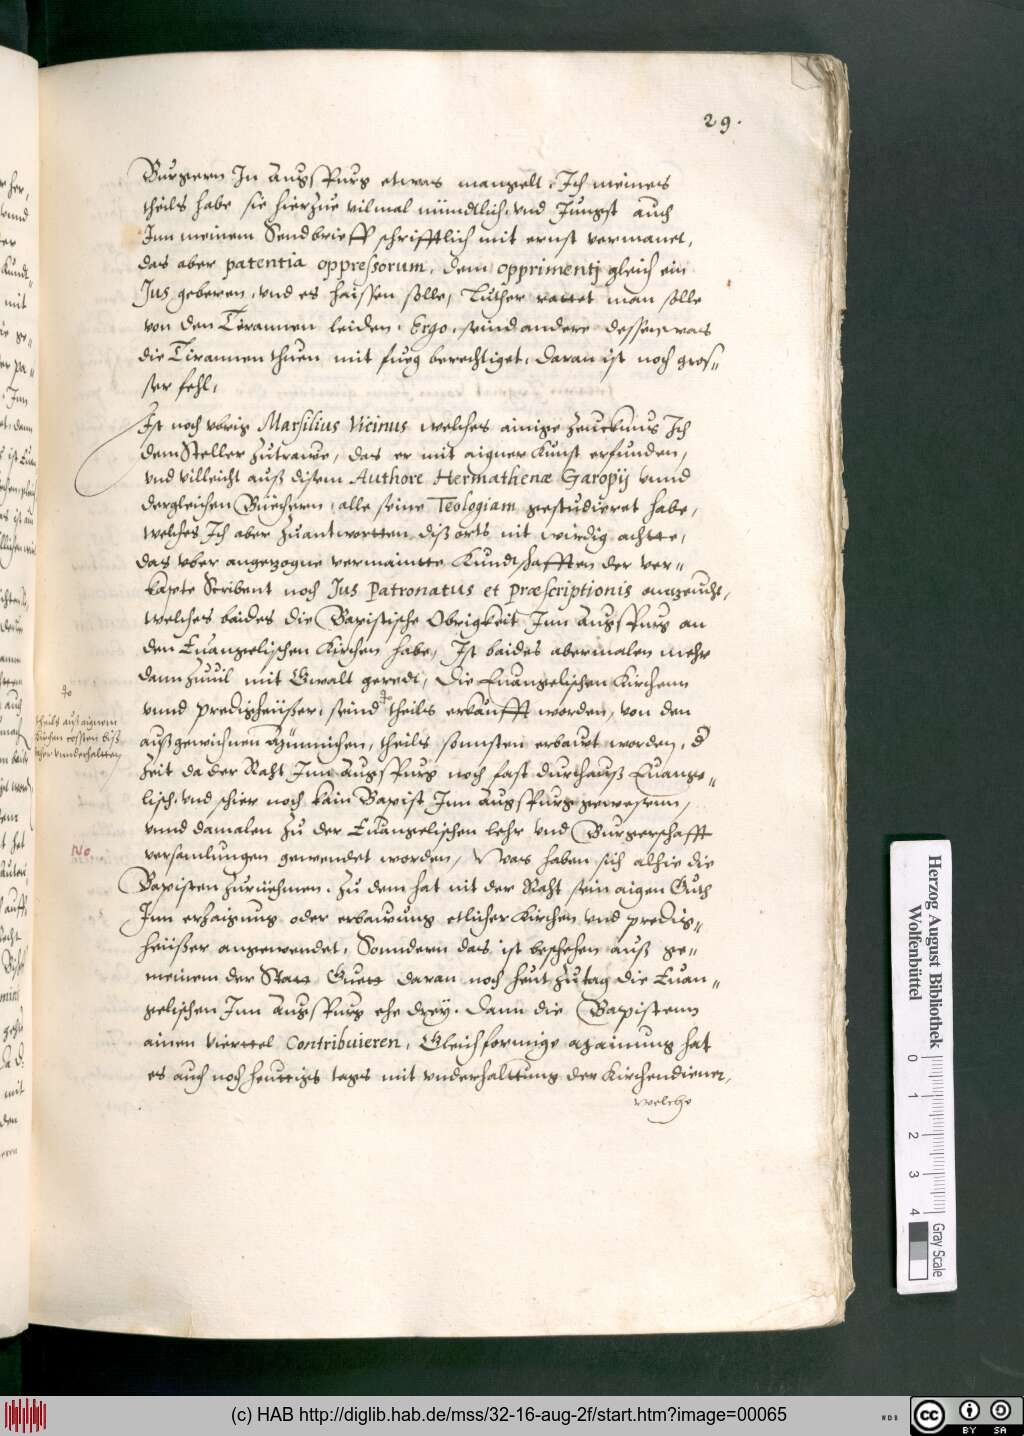 29.
Burgern In Augspurg etwas mangelt, Ich meines
theils habe sie hierzue vilmal mündtlich, vnd Jungst auch
Inn meinem Sendbrieff schrifftlich mit ernst vermanet,
das aber patentia oppressorum, dem opprimentj gleich ein
Jus geberen, vnd es haissen solle, Luther rattet man solle
von den Tirannen leiden. Ergo, seind andere dessen was
die Tirannen thuen mit fueg berechtiget, daran ist noch gros-
ser fehl,
Ist noch vbrig Marsilius Vicinus welches ainige Zeucknus Ich
dem Steller Zutrawe, das er mit aigner Kunst erfunden,
vnd villeicht auß disem Authore Hermathenæ Garopij vnnd
dergleichen Büechern, alle seine Teologiam gestudieret habe,
welches Ich aber Zuantwortten diß orts nit wirdig achtte,
das vber angezogne vermaintte Kundtschafften der ver-
kapte Scribent noch Jus Patronatus et præscriptionis anzeucht,
welches baides die Bapistische Obrigkeit Inn Augspurg an
den Euangelischen Kirchen habe, Ist baides abermalen mehr
dann Zuuil mit Gwalt geredt, Die Euangelischen Kirchenn
vnnd predigheüßer, seind theils erkaufft worden, von den
außgewichnen Münnichen, theils sonnsten erbawt worden, d
Zeit da der Raht Inn Augspurg noch fast durchauß Euange-
lisch, vnd schier noch kain Bapist Inn Augspurg gewesenn,
vnnd damalen Zu der Euangelischen lehr vnd Burgerschafft
versamlungen gewendet worden, Was haben sich alhie die
Bapisten Zurüehmen. Zu dem hat nit der Raht sein aigen Guth
Inn erhaisung oder erbawung etlicher Kirchen vnd predig-
heüßer angewendet, Sonndern das ist beschehen auß ge-
meinem der Statt Guett daran noch heut Zutag die Euan-
gelischen Inn Augspurg ehe drey. Dann die Bapistenn
ainen Viertel Contribuieren, Gleichformige mainung hat
es auch noch heuttigs tags mit vnderhalttung der Kirchendiener,
welche
theils auß aignem
Kirchen cossten biß
her vnnderhaltten
No.
Herzog August Bibliothek
Wolfenbüttel
0 1 2 3 4
Gray Scale
(c) HAB http://diglib.hab.de/mss/32-16-aug-2f/start.htm?image=00065
WDB
cc BY SA